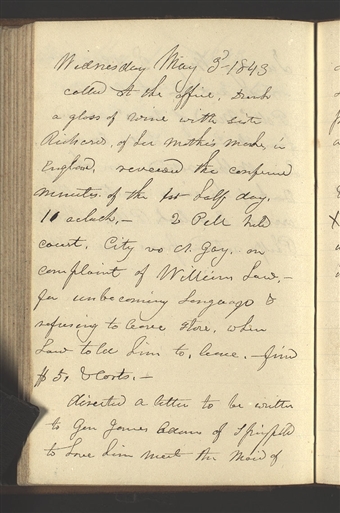 Wednesday May 3d 1843
called at the office, Drank
a glass of wine with sister
Richards, of her mother's make in
England. reviewed the conference
minutes of the 1st half day.
10 oclock,— 2 P.M. held
court. City vs A. Gay. on
complaint of William Law,—
for unbecoming language &
refusing to leave store, when
Law told him to, leave.— fine
$5, & Costs.—
directed a letter to be written
to Gen James Adams of Springfield
to have him meet the Maid of